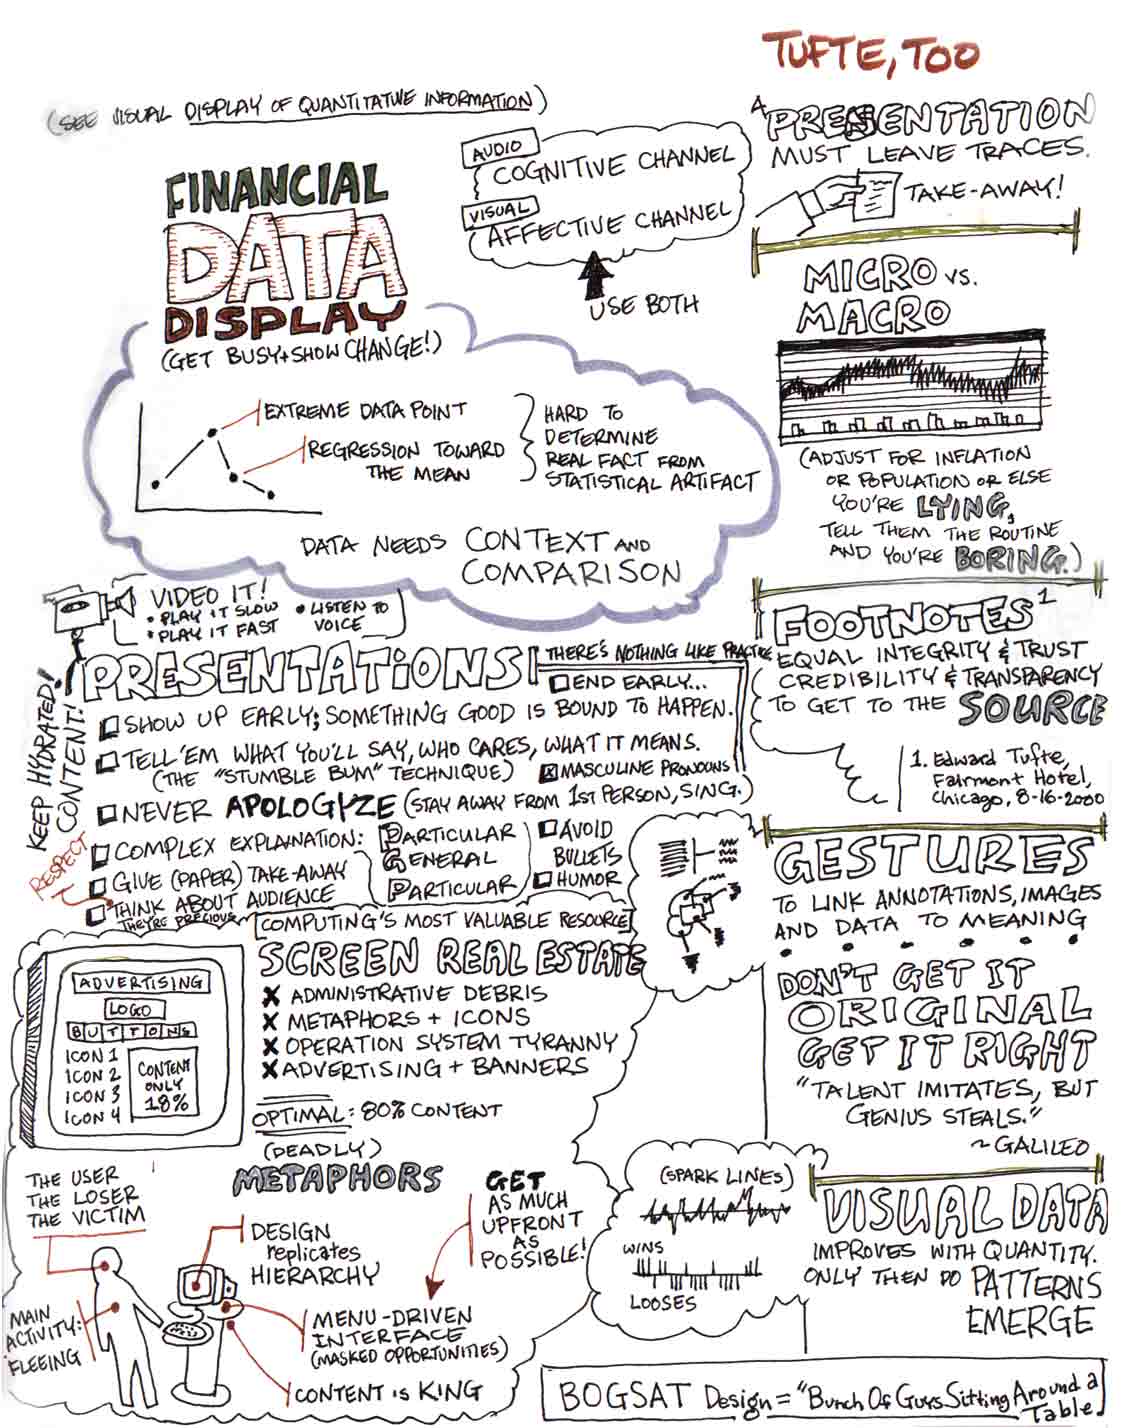 TUFTE, TOO
(SEE VISUAL DISPLAY OF QUANTITATIVE INFORMATION)
FINANCIAL
DATA
DISPLAY
(GET BUSY + SHOW CHANGE!)
AUDIO
COGNITIVE CHANNEL
VISUAL
AFFECTIVE CHANNEL
USE BOTH
EXTREME DATA POINT
REGRESSION TOWARD
THE MEAN
HARD TO
DETERMINE
REAL FACT FROM
STATISTICAL ARTIFACT
DATA NEEDS CONTEXT AND
COMPARISON
A PRESENTATION
MUST LEAVE TRACES.
TAKE-AWAY!
MICRO VS.
MACRO
(ADJUST FOR INFLATION
OR POPULATION OR ELSE
YOU'RE LYING,
TELL THEM THE ROUTINE
AND YOU'RE BORING.)
FOOTNOTES 1
EQUAL INTEGRITY & TRUST
CREDIBILITY & TRANSPARENCY
TO GET TO THE SOURCE
1. Edward Tufte,
Fairmont Hotel,
Chicago, 8-16-2000
VIDEO IT!
• PLAY IT SLOW
• PLAY IT FAST
• LISTEN TO
VOICE
KEEP HYDRATED!
CONTENT!
PRESENTATIONS!
THERE'S NOTHING LIKE PRACTICE
END EARLY...
SHOW UP EARLY; SOMETHING GOOD IS BOUND TO HAPPEN.
TELL 'EM WHAT YOU'LL SAY, WHO CARES, WHAT IT MEANS.
(THE "STUMBLE BUM" TECHNIQUE)
MASCULINE PRONOUNS
NEVER APOLOGYZE (STAY AWAY FROM 1ST PERSON, SING.)
COMPLEX EXPLANATION:
PARTICULAR
GENERAL
PARTICULAR
AVOID
BULLETS
HUMOR
RESPECT
GIVE (PAPER) TAKE-AWAY
THINK ABOUT AUDIENCE
THEY'RE PRECIOUS
COMPUTING'S MOST VALUABLE RESOURCE
SCREEN REAL ESTATE
X ADMINISTRATIVE DEBRIS
X METAPHORS + ICONS
X OPERATION SYSTEM TYRANNY
X ADVERTISING + BANNERS
OPTIMAL: 80% CONTENT
ADVERTISING
LOGO
BUTTONS
ICON 1
ICON 2
ICON 3
ICON 4
CONTENT
ONLY
18%
GESTURES
TO LINK ANNOTATIONS, IMAGES
AND DATA TO MEANING
DON'T GET IT
ORIGINAL
GET IT RIGHT
"TALENT IMITATES, BUT
GENIUS STEALS."
~ GALILEO
(DEADLY)
METAPHORS
THE USER
THE LOSER
THE VICTIM
MAIN
ACTIVITY:
FLEEING
DESIGN
replicates
HIERARCHY
GET
AS MUCH
UPFRONT
AS
POSSIBLE!
MENU-DRIVEN
INTERFACE
(MASKED OPPORTUNITIES)
CONTENT IS KING
(SPARK LINES)
WINS
LOOSES
VISUAL DATA
IMPROVES WITH QUANTITY.
ONLY THEN DO PATTERNS
EMERGE
BOGSAT Design = "Bunch Of Guys Sitting Around a
Table